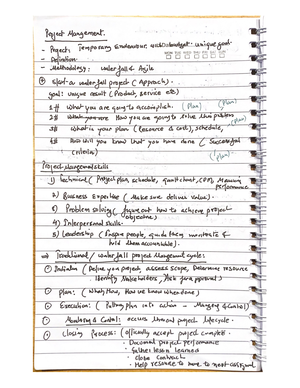 Project Management.
- Project: Temporary Endeavour with budget. unique goal.
- Definition
- Methodology: waterfall & Agile
Start a waterfall project (Approach).
goal: unique result (Product, service etc)
1# What you are going to accomplish. (Plan)
2# How you are going to solve this problem (Plan)
3# What is your plan (Resource & cost), schedule, (Plan)
4# How will you know that you have done (Successful
criteria) (Plan).
Project Management skills
1) Technical (Project plan, schedule, gantt chart, Measuring
performance
2) Business Expertise (Make sure deliver value).
3) Problem solving (figure out how to achieve project
objectives)
4) Interpersonal skills
5) Leadership (Inspire people, guide & motivate &
hold them accountable).
Traditional / waterfall project Management cycle:
Initiation (Define your project, assess scope, Determine resource
Identify Stakeholders, Get approval)
Plan: (What, How, How we know when done)
Execution: (Putting plan into action - Managing & Control)
Monitoring & Control: occurs through project lifecycle.
Closing Process: (officially accept project complete.
- Document project performance
- Gather lesson learned
- close contract
- Help resource to move to next assignment